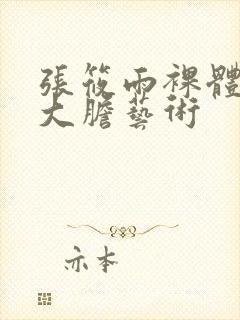 張筱雨裸體
大膽藝術
亦本